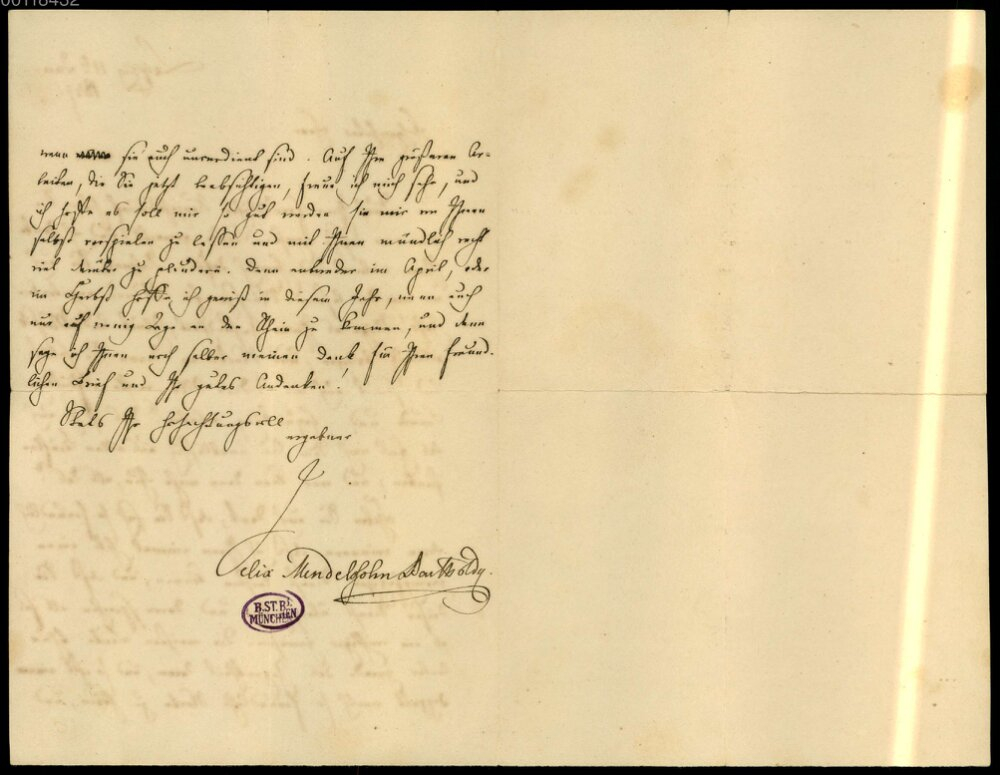 00118432
wenn sie auch unverdient sind. Auf Ihre größeren Ar-
beiten, die Sie jetzt beabsichtigen, freue ich mich sehr, und
ich hoffe es soll mir so gut werden sie mir von Ihnen
selbst vorspielen zu lassen und mit Ihnen mündlich recht
viel darüber zu plaudern. Denn entweder im April, oder
im Herbst hoffe ich gewiß in diesem Jahr, wenn auch
nur auf wenig Tage an den Rhein zu kommen, und dann
sage ich Ihnen noch selber meinen Dank für Ihren freund-
lichen Brief und Ihr gutes Andenken!
Stets Ihr hochachtungsvoll
ergebner
Felix Mendelssohn Bartholdy.
B.ST.B.
MÜNCHEN